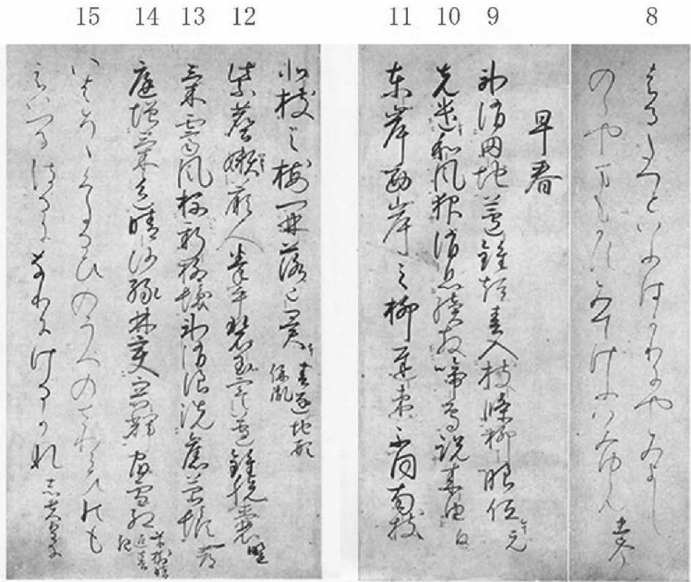 8
はるたつといふはかりにやみよし
のゝやまもかすみてけさはみゆらん 忠岑
早春
9
氷消田地蘆錐短春入枝條柳眼低 元
10
先遣和風報消息續教啼鳥説来由 白
11
東岸西岸之柳遅速不同南枝
北枝之梅開落已異 春逐地形 保胤
12
紫塵嬾蕨人拳手碧玉寒蘆錐脱嚢 野
13
氣霽風梳新柳髪氷消浪洗舊苔鬚 都
14
庭増氣色晴沙緑林變容輝宿雪紅 紀
15
いはそゝくたるひのうへのさわらひのも
えいつるはるになりにけるかな 志貴皇子